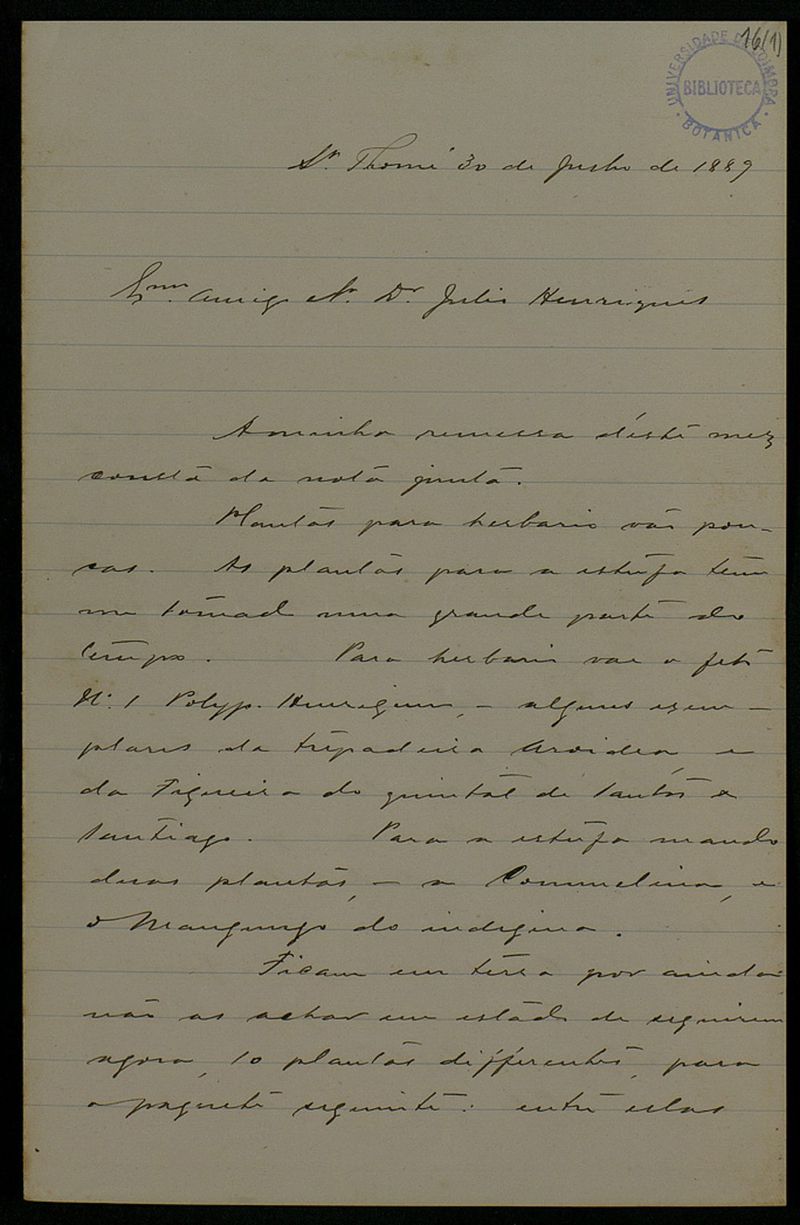 16(1)
UNIVERSIDADE DE COIMBRA
BIBLIOTECA
BOTANICA
Sn. Thomé 30 de Junho de 1889
Exmo. amigo Sr. Dr. Julio Henriques
A minha remessa d'éste mez
consta da nota junta.
Plantas para herbario vão pou-
cas. As plantas para a estufa tem
me tomado uma grande parte do
tempo. Para herbario vae o feto
N.º 1 Polyp. - alguns exem-
plares da trepadeira Aroidea, e
da Figueira do quintal de Santos e
Santiago. Para a estufa mando
duas plantas, - a Commelina, e
o Mangungo do indigena.
Ficam em terra por ainda
não as achar em estado de seguirem
agora, 10 plantas différentes, para
o paquete seguinte: entre estas